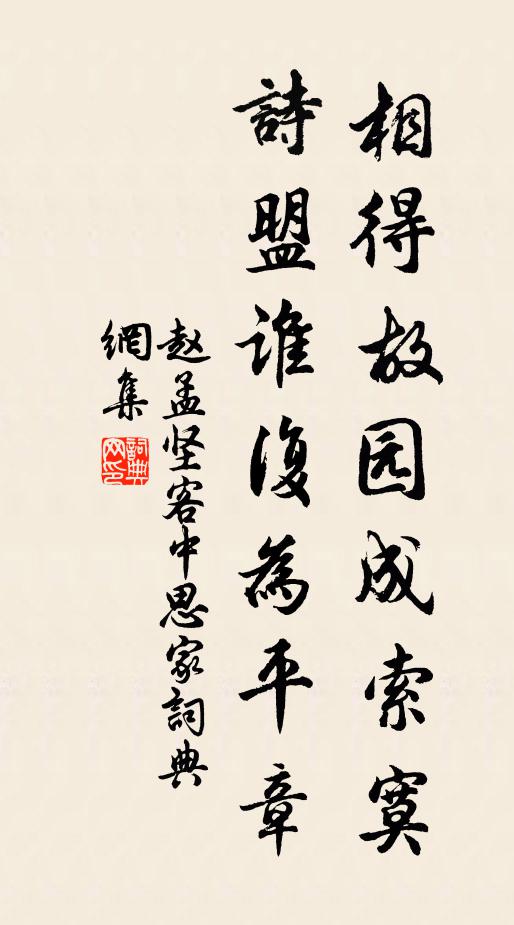 相得故园成索寞
詩盟谁復為平章
赵孟坚客中思家詞典
網集
詞典网印